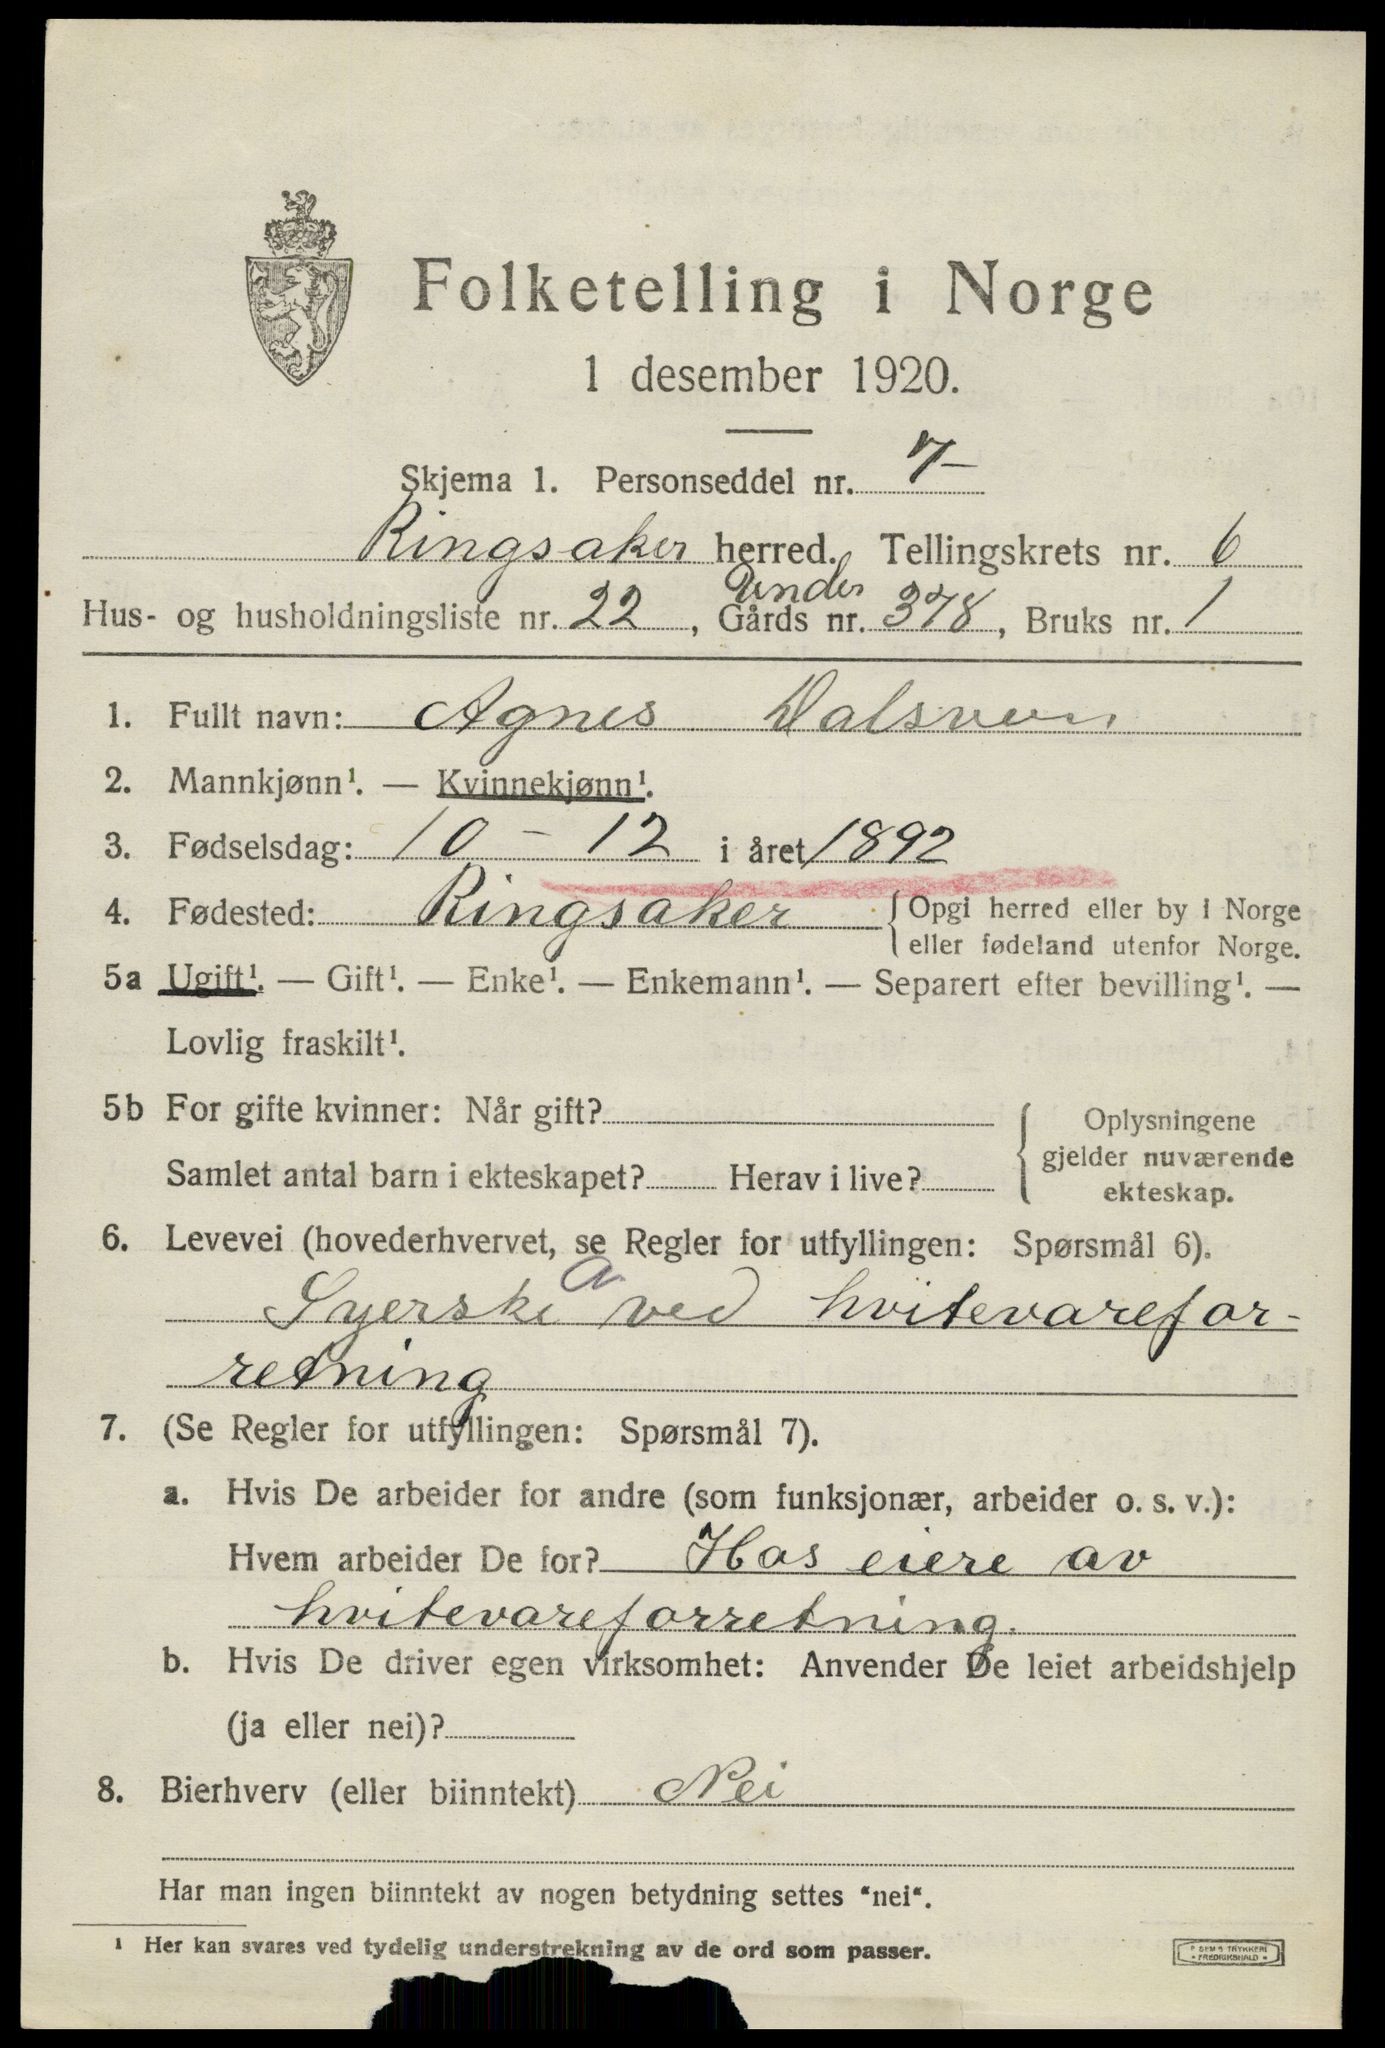 Folketelling i Norge
1 desember 1920.
Skjema 1. Personseddel nr. 7-
Ringsaker herred. Tellingskrets nr. 6
Under
Hus- og husholdningsliste nr. 22, Gårds nr. 378, Bruks nr. 1
1. Fullt navn: Agnes Dalsveen
2. Mannkjønn¹. — Kvinnekjønn¹.
3. Fødselsdag: 10 - 12 i året 1892
4. Fødested: Ringsaker { Opgi herred eller by i Norge
eller fødeland utenfor Norge.
5a Ugift¹. — Gift¹. — Enke¹. — Enkemann¹. — Separert efter bevilling¹. —
Lovlig fraskilt¹.
5b For gifte kvinner: Når gift? { Oplysningene
gjelder nuværende
ekteskap.
Samlet antal barn i ekteskapet? Herav i live?
6. Levevei (hovederhvervet, se Regler for utfyllingen: Spørsmål 6).
a
Syerske ved hvitevarefor-
retning
7. (Se Regler for utfyllingen: Spørsmål 7).
a. Hvis De arbeider for andre (som funksjonær, arbeider o. s. v.):
Hvem arbeider De for? Hos eiere av
hvitevareforretning.
b. Hvis De driver egen virksomhet: Anvender De leiet arbeidshjelp
(ja eller nei)?
8. Bierhverv (eller biinntekt) Nei
Har man ingen biinntekt av nogen betydning settes "nei".
¹ Her kan svares ved tydelig understrekning av de ord som passer.
SEM'S TRYKKERI
• FREDRIKSHALD •